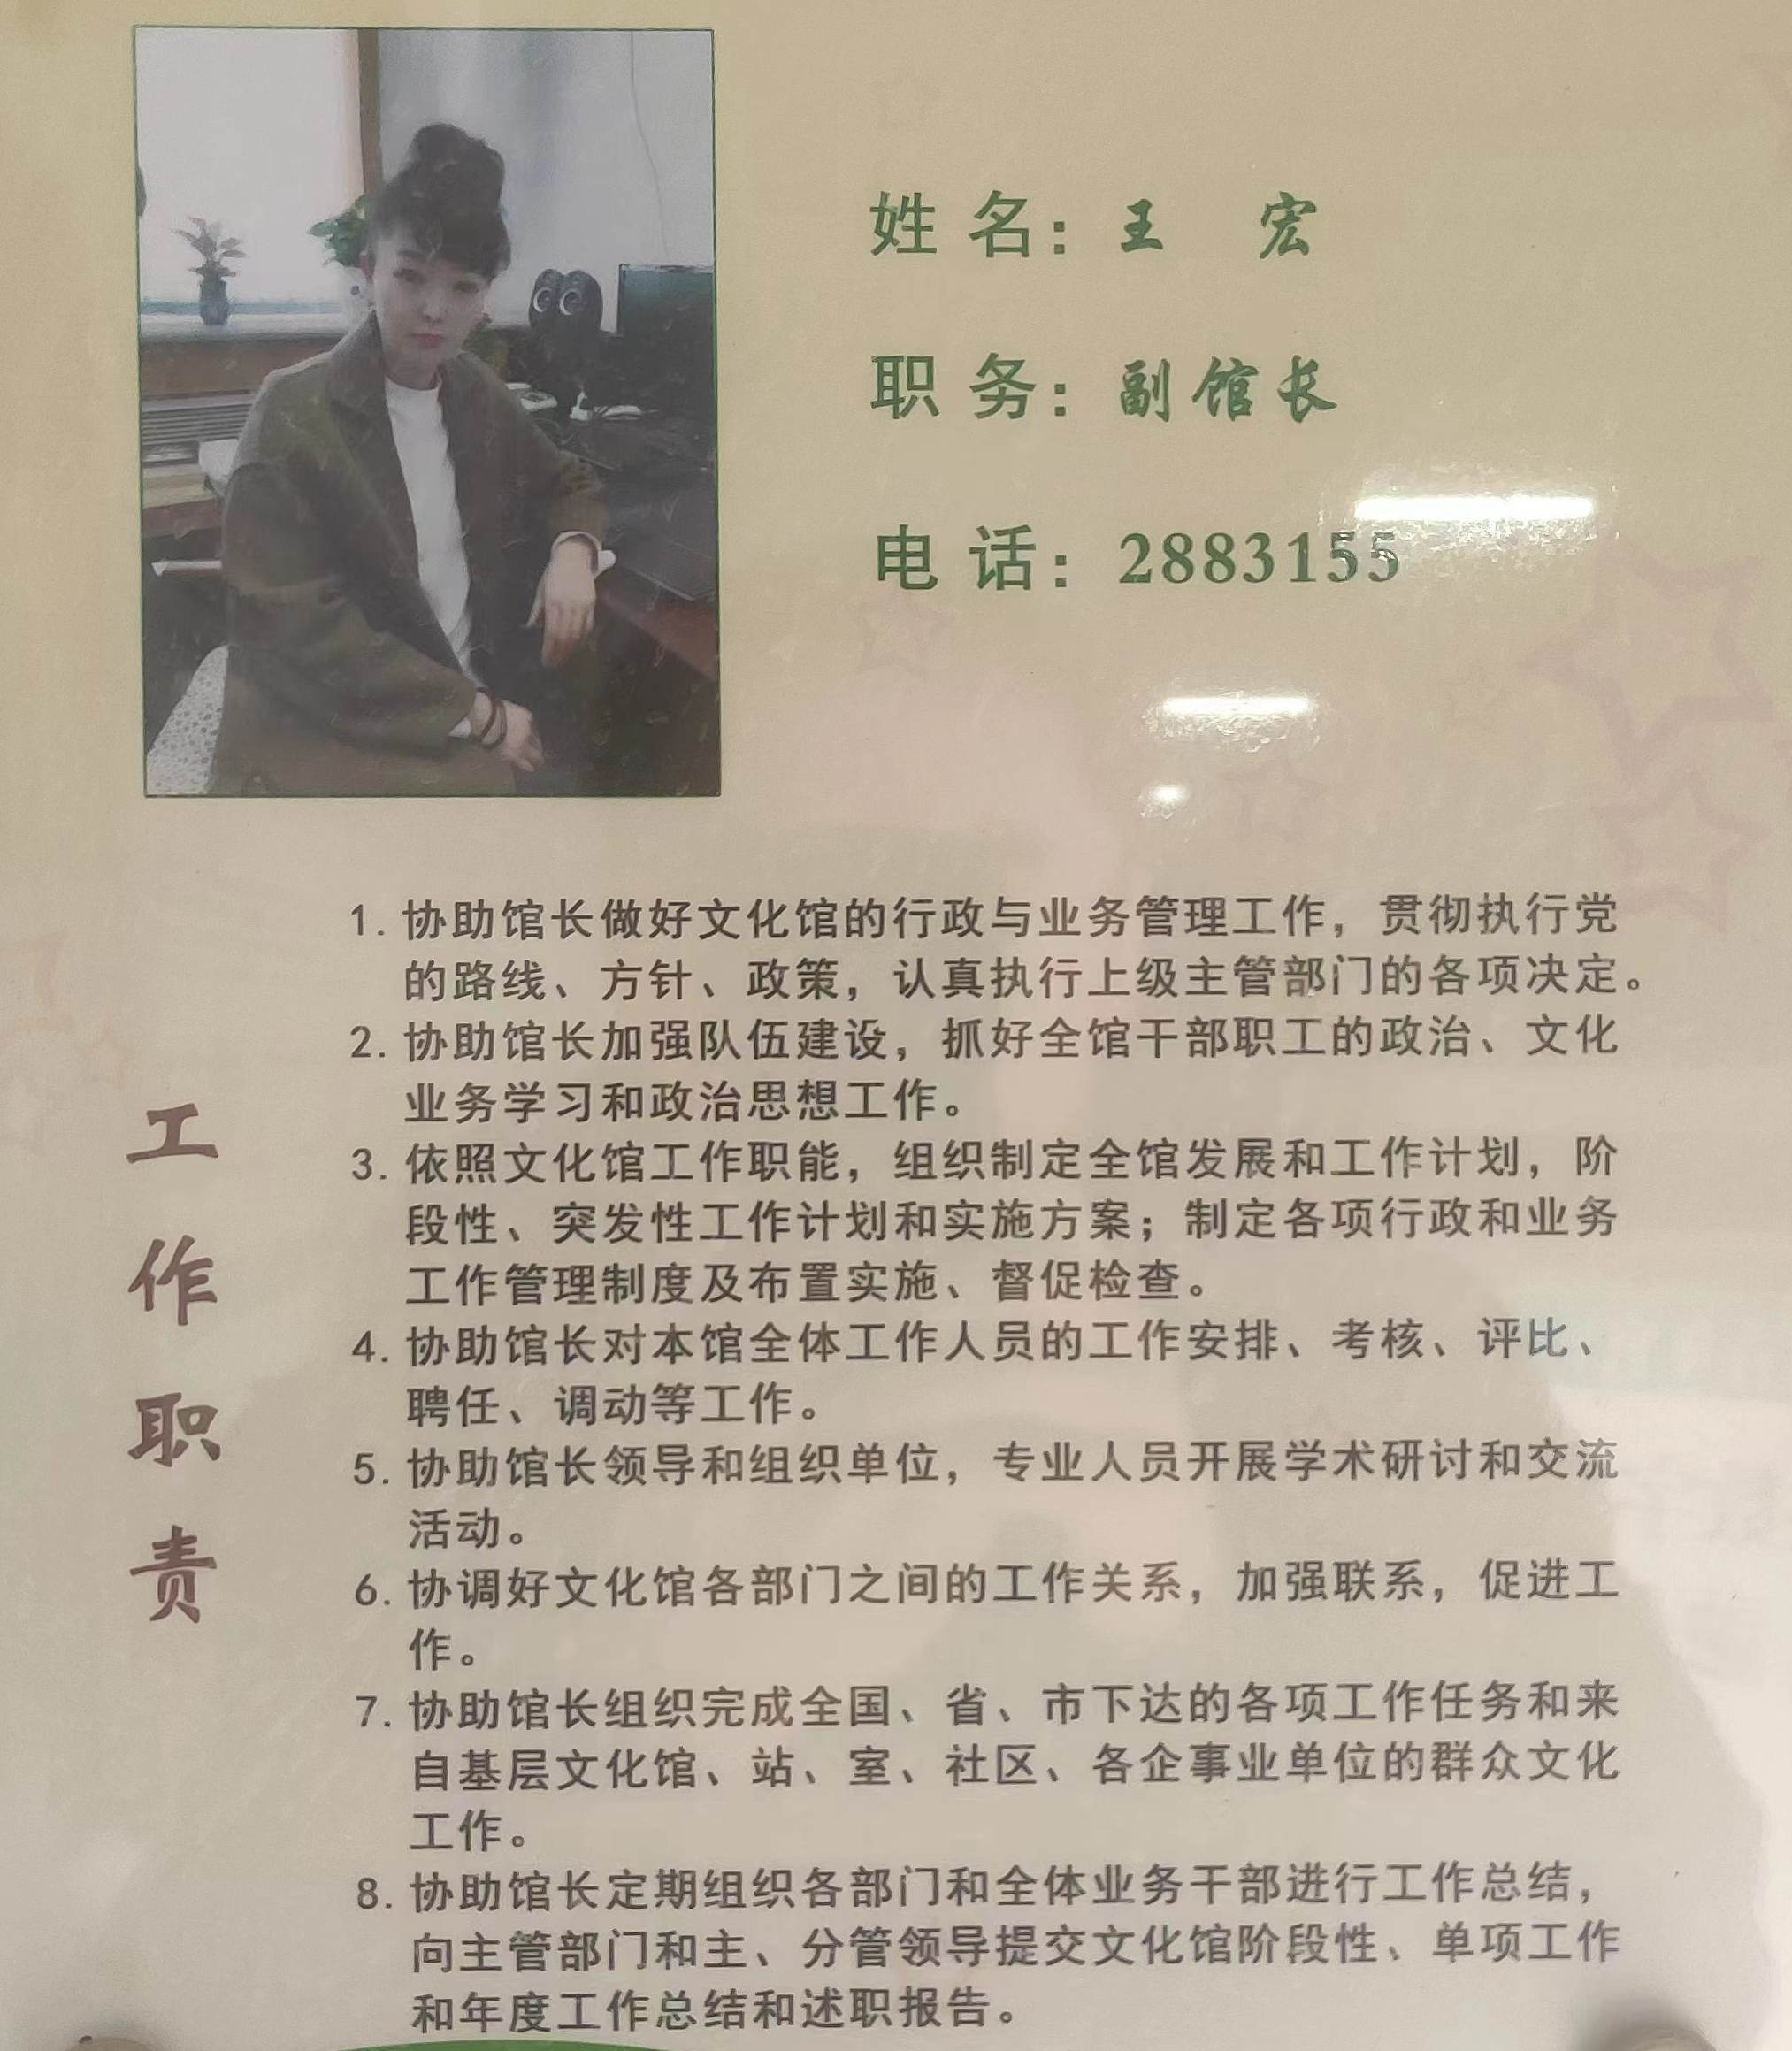 姓名：王 宏
职务：副馆长
电话：2883155
工作职责
1. 协助馆长做好文化馆的行政与业务管理工作，贯彻执行党
的路线、方针、政策，认真执行上级主管部门的各项决定。
2. 协助馆长加强队伍建设，抓好全馆干部职工的政治、文化
业务学习和政治思想工作。
3. 依照文化馆工作职能，组织制定全馆发展和工作计划，阶
段性、突发性工作计划和实施方案；制定各项行政和业务
工作管理制度及布置实施、督促检查。
4. 协助馆长对本馆全体工作人员的工作安排、考核、评比、
聘任、调动等工作。
5. 协助馆长领导和组织单位，专业人员开展学术研讨和交流
活动。
6. 协调好文化馆各部门之间的工作关系，加强联系，促进工
作。
7. 协助馆长组织完成全国、省、市下达的各项工作任务和来
自基层文化馆、站、室、社区、各企事业单位的群众文化
工作。
8. 协助馆长定期组织各部门和全体业务干部进行工作总结，
向主管部门和主、分管领导提交文化馆阶段性、单项工作
和年度工作总结和述职报告。